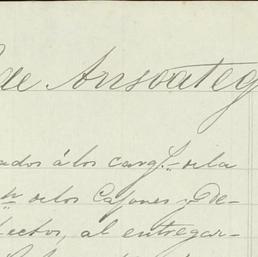 de Arrsoateg
ados á los carg.s de la
n de los Cajones y De-
fectos, al entregar-